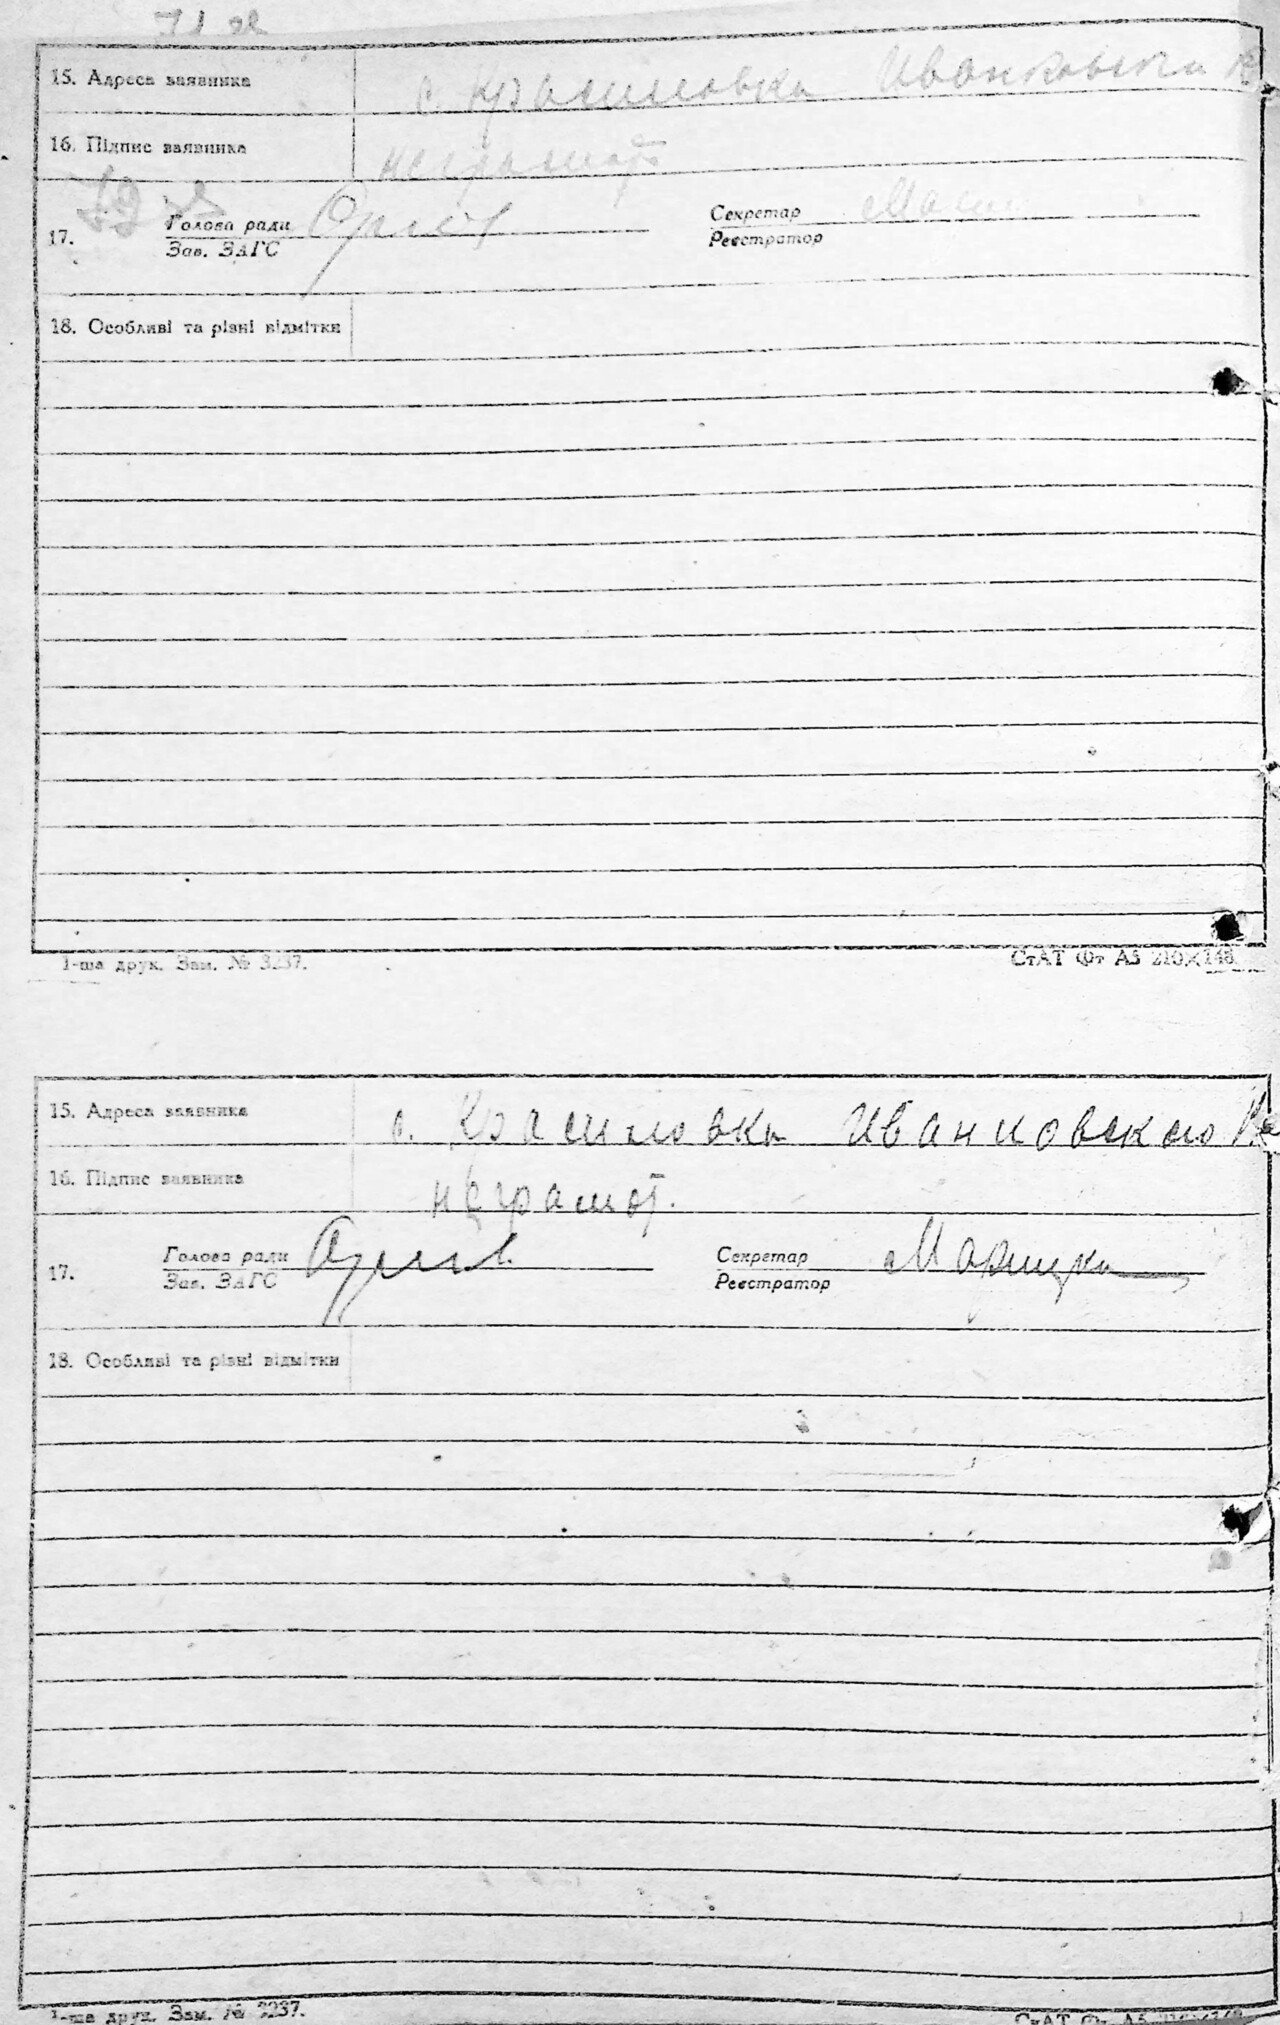 15. Адреса заявника с. Красиловка Иванковски
16. Підпис заявника неграмот
Голова ради Секретар
17. Зав. ЗАГС Реєстратор
18. Особливі та різні відмітки
1-ша друк. Зам. № 3237. СтАТ Фт А5 210×148
15. Адреса заявника с. Красиловка Иванковского
16. Підпис заявника неграмот.
Голова ради Секретар
17. Зав. ЗАГС Реєстратор
18. Особливі та різні відмітки
1-ша друк. Зам. № 3237. СтАТ Фт А5 210×148